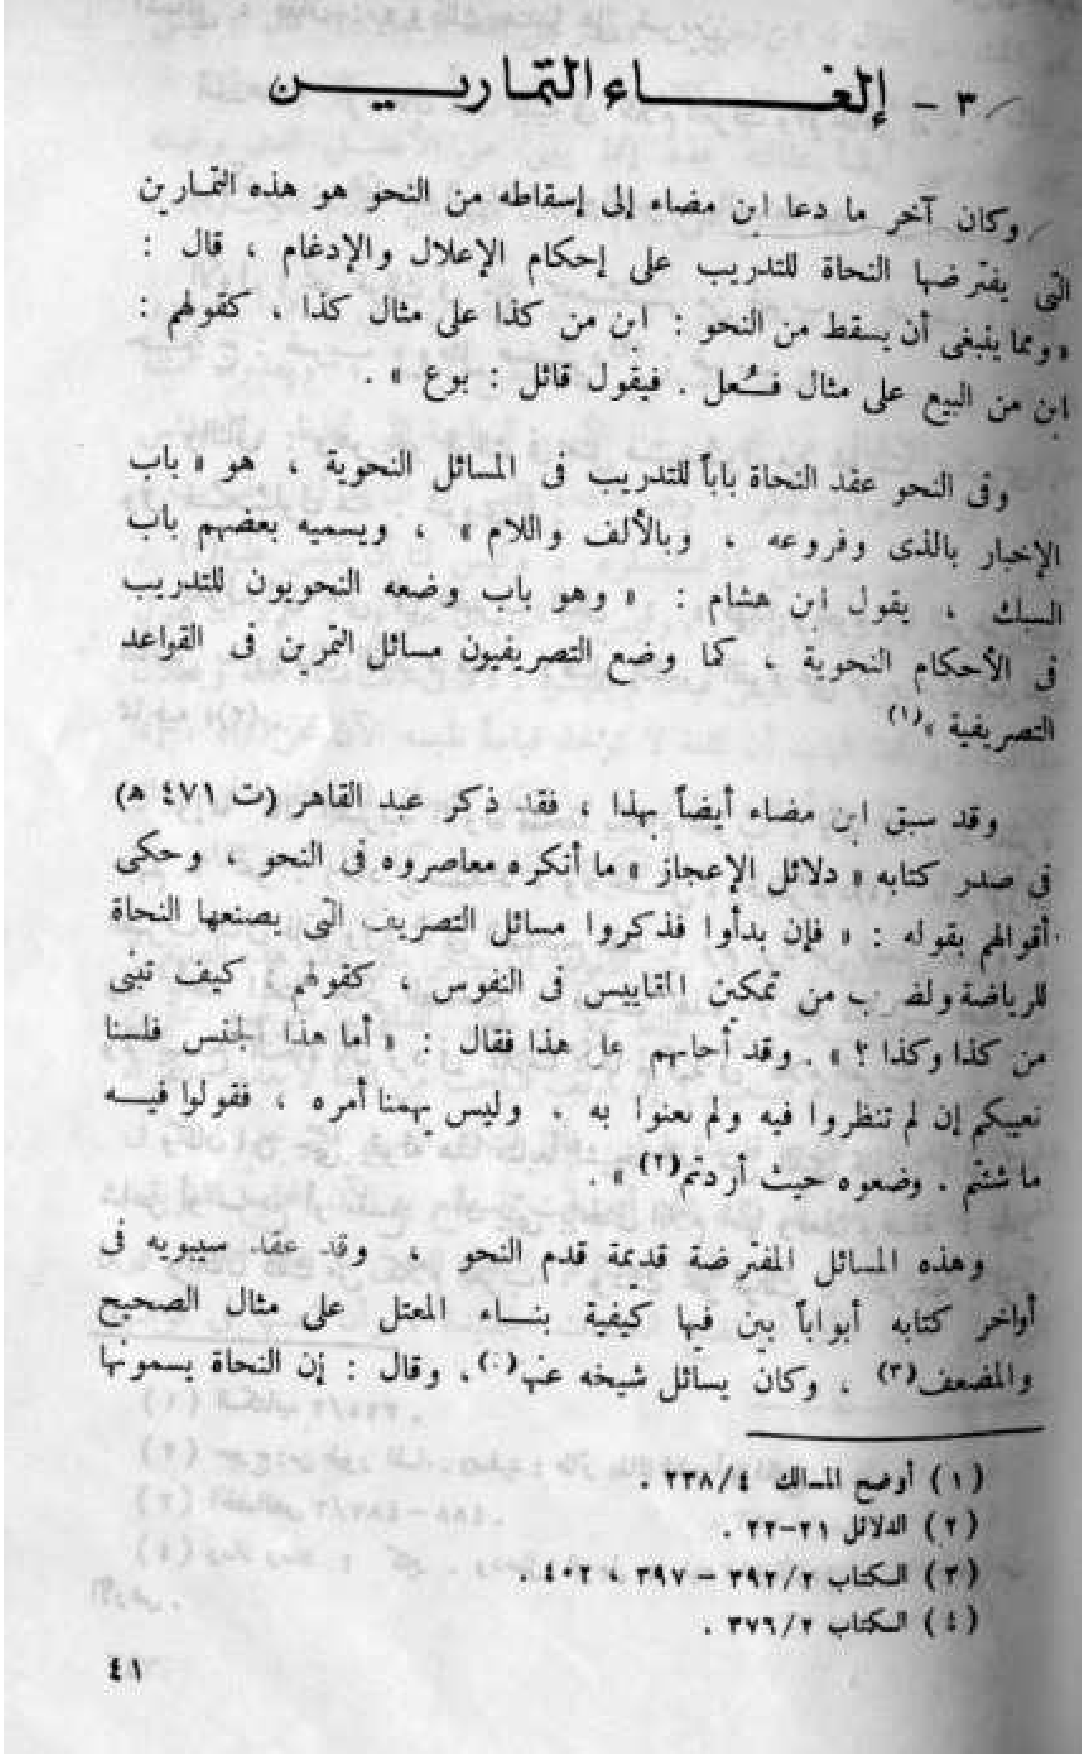 ٣ - إلغاء التمارين
وكان آخر ما دعا ابن مضاء إلى إسقاطه من النحو هو هذه التمارين
التى يفترضها النحاة للتدريب على إحكام الإعلال والإدغام ، قال :
« ومما ينبغى أن يسقط من النحو : ابن من كذا على مثال كذا ، كقولهم :
ابن من البيع على مثال فُعل . فيقول قائل : بوع » .
وفى النحو عقد النحاة باباً للتدريب فى المسائل النحوية ، هو « باب
الإخبار بالذى وفروعه ، وبالألف واللام » ، ويسميه بعضهم باب
السبك ، يقول ابن هشام : « وهو باب وضعه النحويون للتدريب
فى الأحكام النحوية ، كما وضع التصريفيون مسائل التمرين فى القواعد
التصريفية »(١)
وقد سبق ابن مضاء أيضاً بهذا ، فقد ذكر عبد القاهر (ت ٤٧١ هـ)
فى صدر كتابه « دلائل الإعجاز » ما أنكره معاصروه فى النحو ، وحكى
أقوالهم بقوله : « فإن بدأوا فذكروا مسائل التصريف التى يصنعها النحاة
للرياضة ولضرب من تمكين المقاييس فى النفوس ، كقولهم : كيف تبنى
من كذا وكذا ؟ » . وقد أجابهم على هذا فقال : « أما هذا الجنس فلسنا
نعيبكم إن لم تنظروا فيه ولم تعنوا به . وليس يهمنا أمره ، فقولوا فيه
ما شئتم . وضعوه حيث أردتم(٢) » .
وهذه المسائل المفترضة قديمة قدم النحو ، وقد عقد سيبويه فى
أواخر كتابه أبواباً بين فيها كيفية بناء المعتل على مثال الصحيح
والمضعف(٣) ، وكان يسائل شيخه عنها(٤)، وقال : إن النحاة يسمونها
(١) أوضح المسالك ٢٣٨/٤ .
(٢) الدلائل ٢١-٢٢ .
(٣) الكتاب ٣٩٢/٢ – ٣٩٧ ، ٤٠٢ .
(٤) الكتاب ٣٧٦/٢ .
٤١